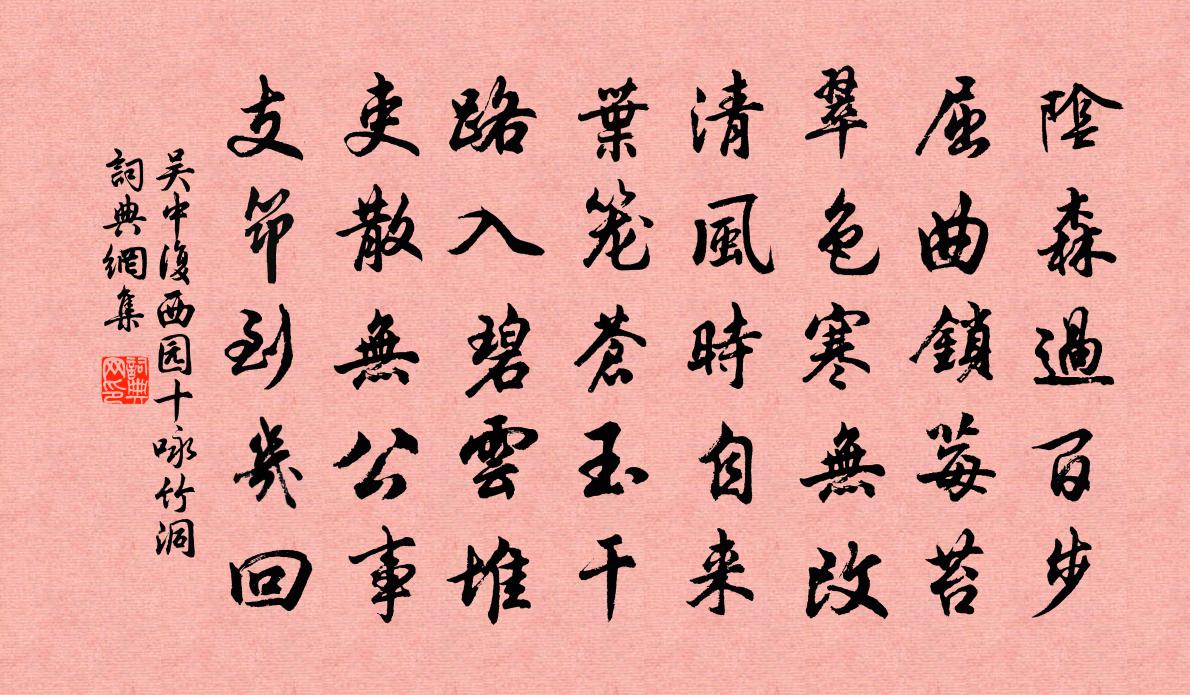 陰森過百步
屈曲鎖莓苔
翠色寒無改
清風時自来
葉笼蒼玉干
路入碧雲堆
吏散無公事
支筇到幾回
吴中復西园十咏竹洞
詞典網集
詞典网印